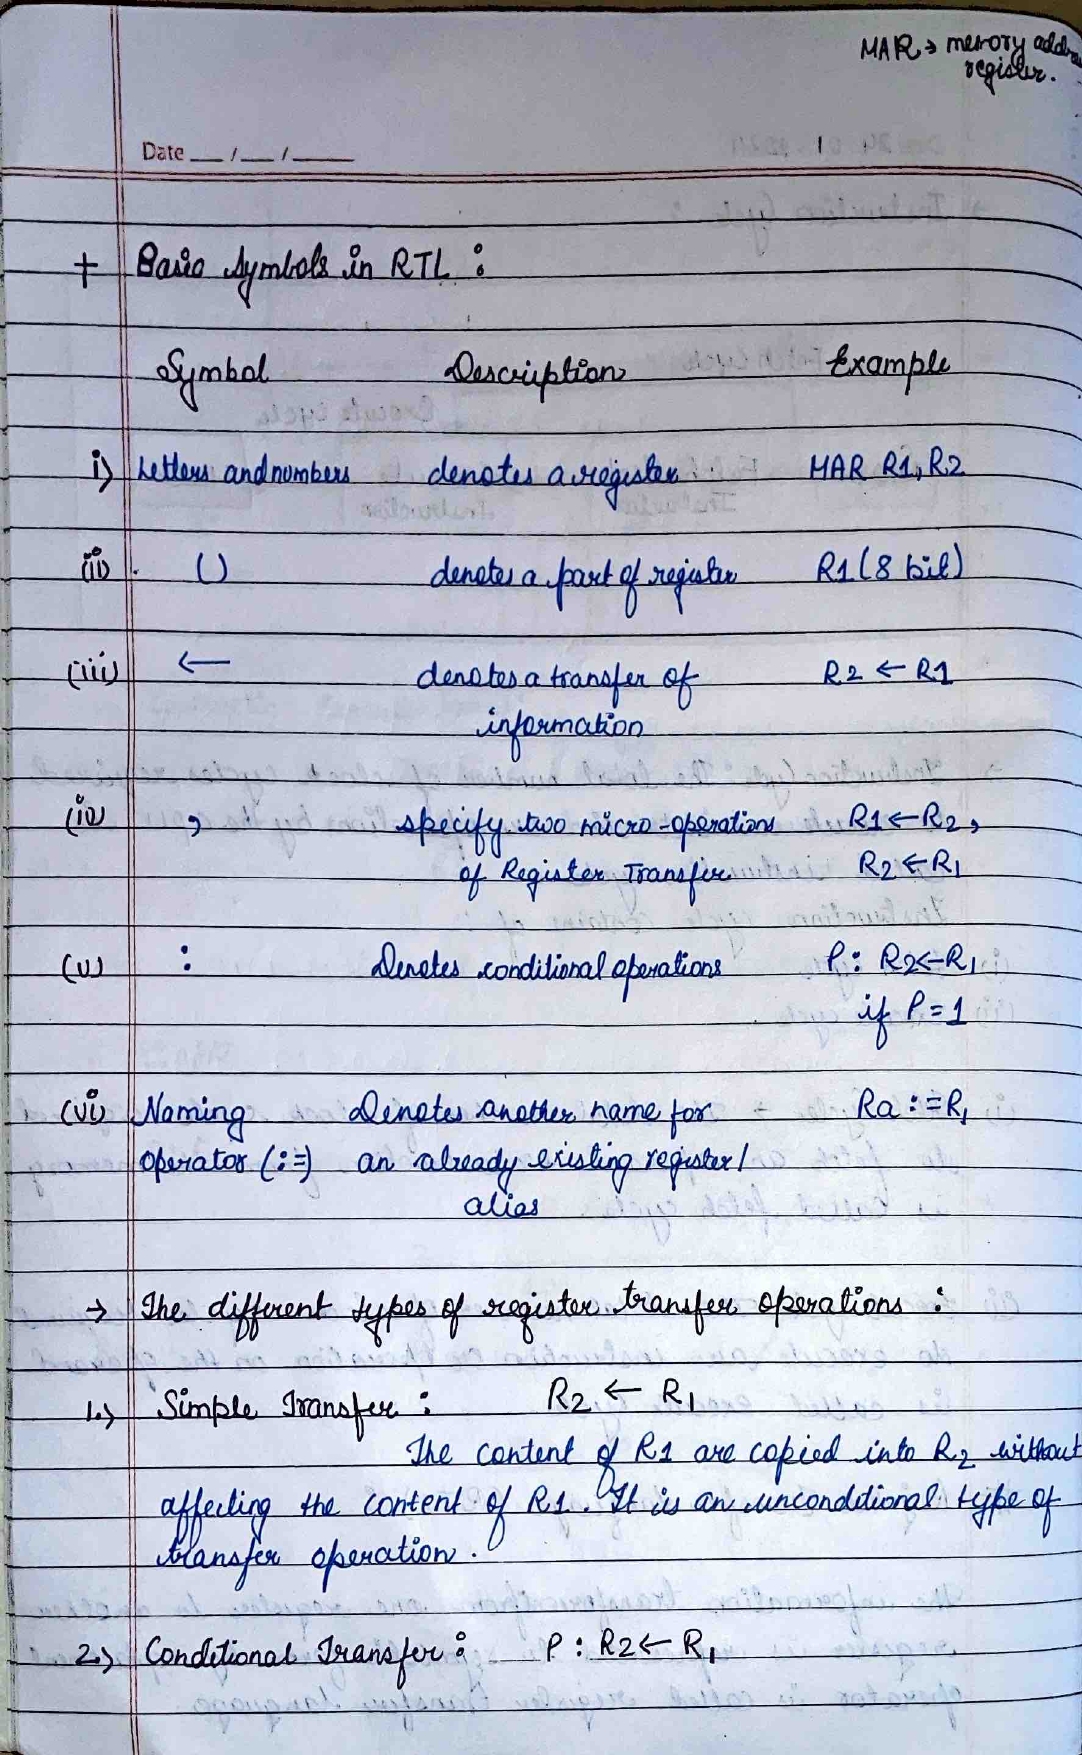 MAR → memory
register.
Date __/__/____
+ Basic Symbols in RTL :
Symbol Description Example
i) Letters and numbers denotes a register MAR R1, R2
(ii) () denotes a part of register R1 (8 bit)
(iii) ← denotes a transfer of R2 ← R1
information
(iv) , specify two micro-operations R1 ← R2,
of Register Transfer R2 ← R1
(v) : Denotes conditional operations P : R2 ← R1
if P = 1
(vi) Naming Denotes another name for Ra := R1
operator (:=) an already existing register/
alias
→ The different types of register transfer operations :
1.) Simple Transfer : R2 ← R1
The content of R1 are copied into R2 without
affecting the content of R1. It is an unconditional type of
transfer operation.
2.) Conditional Transfer : P : R2 ← R1